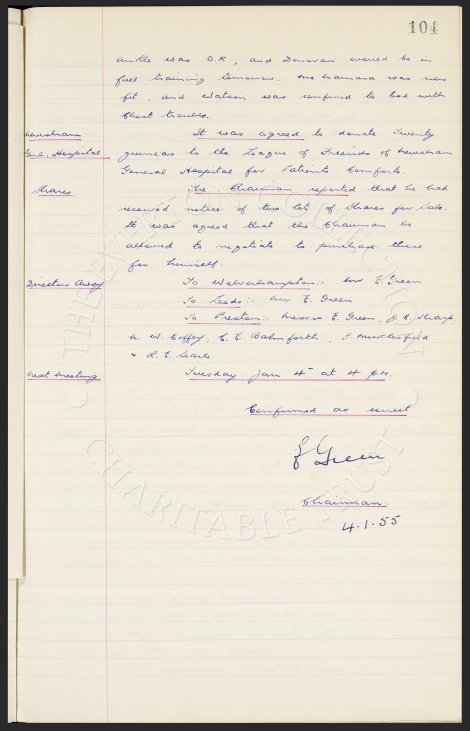 104
ankle was O.K, and Donovan would be in
full training tomorrow. McNamara was now
fit, and Watson was confined to bed with
Chest troubles.
Lewisham
Gnl. Hospital
It was agreed to donate Twenty
guineas to the League of Friends of Lewisham
General Hospital for Patients Comforts.
Shares
The Chairman reported that he had
received notice of two lot of Shares for Sale.
It was agreed that the Chairman be
allowed to negotiate to purchase these
for himself.
Directors Away
To Wolverhampton:- Mr E. Green
To Leeds:- Mr E. Green
To Preston:- Messrs E. Green, J.E. Sharp,
W. Coffey, C.E. F.
& R.E. Searle
Next Meeting
Tuesday Jan 4th at 4 p.m.
Confirmed as correct
E Green
Chairman.
4.1.55
THE EVELYN COLLECTION
CHARITABLE TRUST